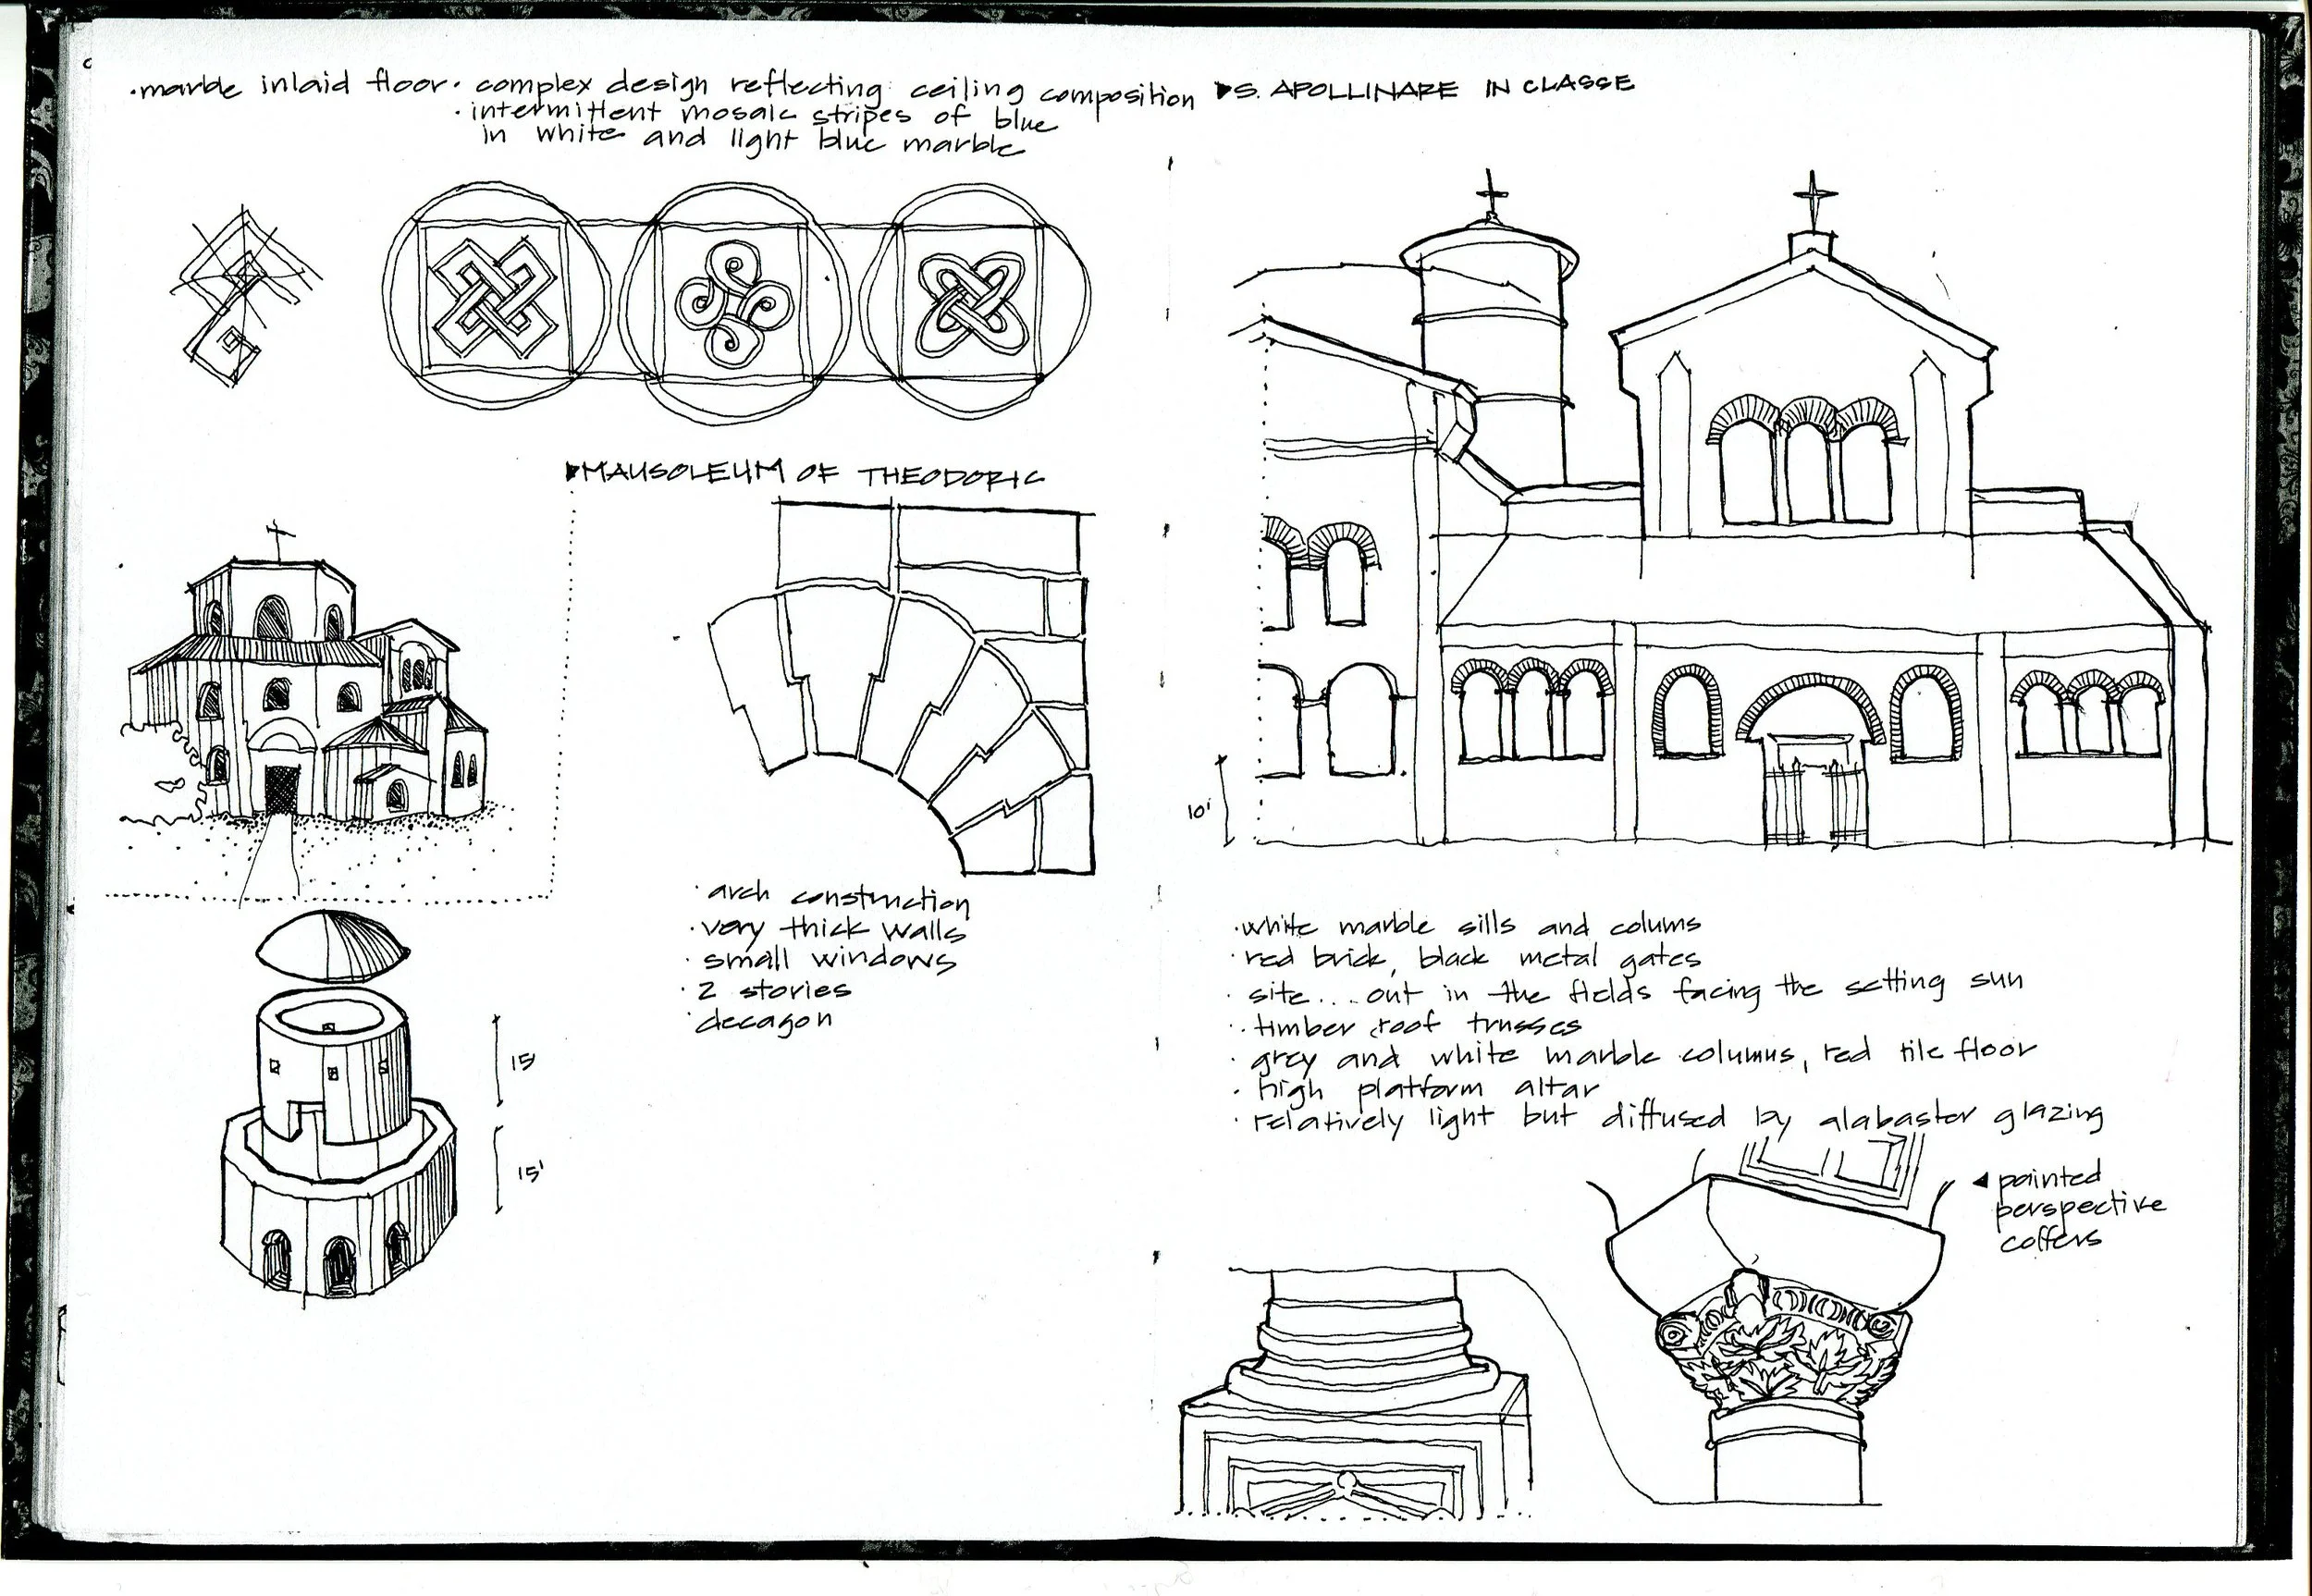 ·marble inlaid floor· complex design reflecting ceiling composition
·intermittent mosaic stripes of blue
in white and light blue marble
MAUSOLEUM OF THEODORIC
·arch construction
·very thick walls
·small windows
·2 stories
·decagon
15'
15'
S. APOLLINARE IN CLASSE
10'
·white marble sills and colums
·red brick, black metal gates
·site... out in the fields facing the setting sun
·timber roof trusses
·grey and white marble columns, red tile floor
·high platform altar
·relatively light but diffused by alabaster glazing
painted
perspective
coffers